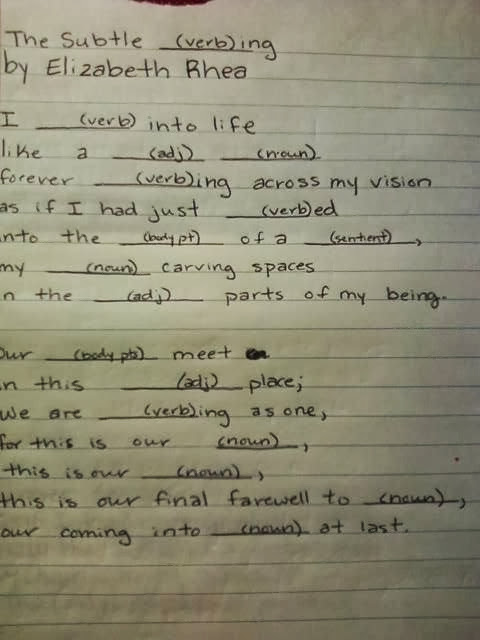 The Subtle (verb)ing
by Elizabeth Rhea
I (verb) into life
like a (adj) (noun)
forever (verb)ing across my vision
as if I had just (verb)ed
nto the (body pt) of a (sentient),
my (noun) carving spaces
n the (adj) parts of my being.
our (body pts) meet
n this (adj) place;
we are (verb)ing as one,
for this is our (noun),
this is our (noun),
this is our final farewell to (noun),
our coming into (noun) at last.